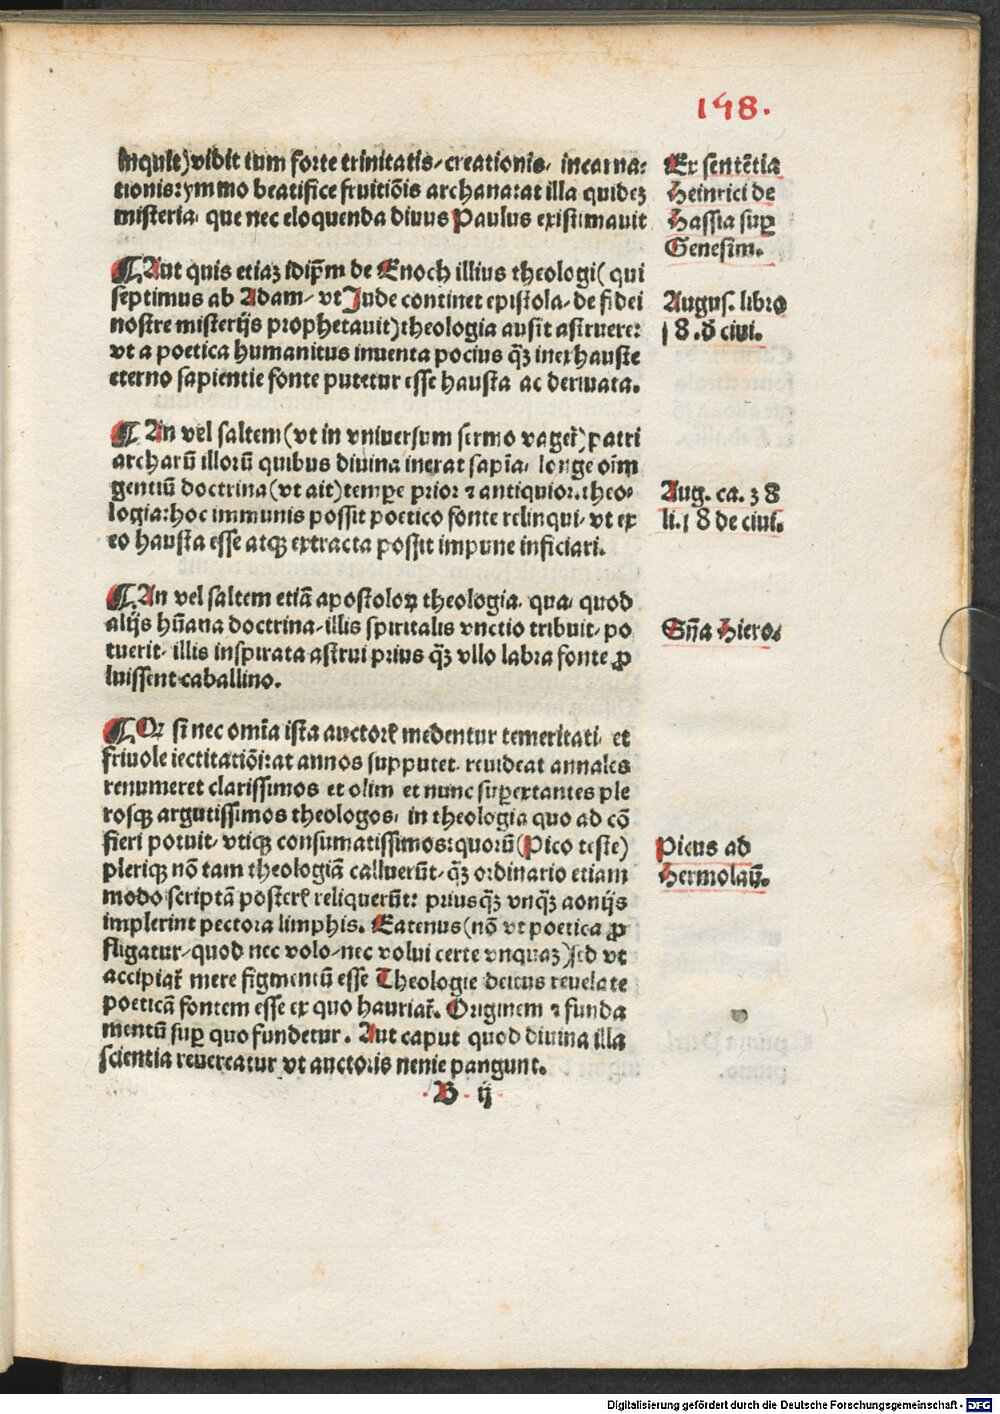 198.
inquit) vidit tum forte trinitatis/ creationis/ incarna⸗
tionis: ymmo beatifice fruitiōis archana: at illa quideʒ
misteria/ que nec eloquenda divus Paulus existimavit
Ex sentētia
Heinrici de
Hassia suꝑ
Genesim.
¶ Aut quis etiaʒ idip̄m de Enoch illius theologi (qui
septimus ab Adam/ vt Jude continet epistola/ de fidei
nostre misterijs prophetauit) theologia ausit astruere:
vt a poetica humanitus inuenta pocius q̄ʒ inexhauste
eterno sapientie fonte putetur esse hausta ac deriuata.
Augus. libro
18. d ciui.
¶ An vel saltem (vt in vniuersum sermo vageť) patri
archarū illorū quibus diuina inerat sapīa/ longe oīm
gentiū doctrina (vt ait) temꝑe prior ⁊ antiquior. theo⸗
logia: hoc immunis possit poetico fonte relinqui/ vt ex
eo hausta esse atqꝫ extracta possit impune inficiari.
Aug. ca. 38
li. 18 de ciui.
¶ An vel saltem etiā apostoloꝝ theologia/ qua/ quod
alijs hūana doctrina/ illis spiritalis vnctio tribuit/ po
tuerit/ illis inspirata astrui prius q̄ʒ vllo labra fonte ꝓ
luissent caballino.
Sn̄ia Hiero.
¶ Qꝫ si nec omīa ista auctoꝝ medentur temeritati/ et
friuole iectitatiōi: at annos supputet/ reuideat annales
renumeret clarissimos et olim et nunc suꝑextantes ple
rosqꝫ argutissimos theologos/ in theologia quo ad cō
fieri potuit/ vtiqꝫ consumatissimos: quorū (Pico teste)
pleriqꝫ nō tam theologiā calluerūt/ q̄ʒ ordinario etiam
modo scriptā posteꝝ reliquerūt: priusq̄ʒ vnq̄ʒ aonijs
implerint pectora limphis. Eatenus (nō vt poetica ꝓ
fligatur/ quod nec volo/ nec volui certe vnquaʒ) sed vt
accipiať mere figmentū esse Theologie deitus reuelate
poeticā fontem esse ex quo hauriať. Originem ⁊ funda
mentū suꝑ quo fundetur. Aut caput quod diuina illa
scientia reuereatur vt auctoris nenie pangunt.
Picus ad
Hermolaū.
B ij
Digitalisierung gefördert durch die Deutsche Forschungsgemeinschaft - DFG